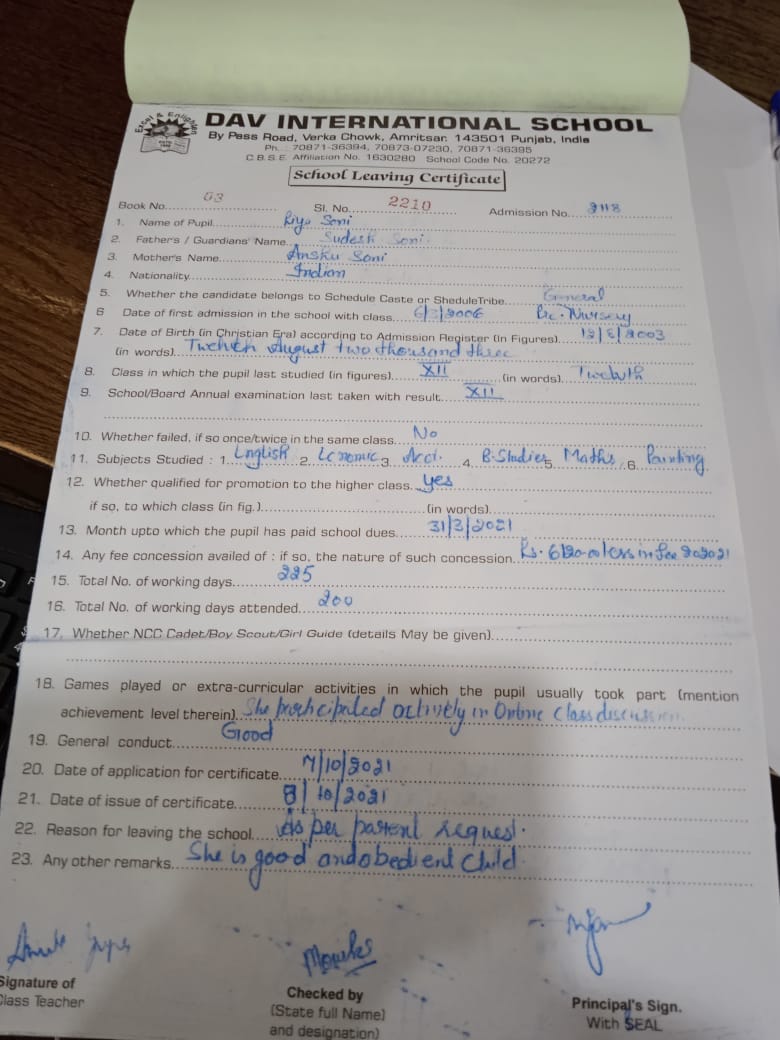 Excel & Enlighten
DAV INTERNATIONAL SCHOOL
By Pass Road, Verka Chowk, Amritsar. 143501 Punjab, India
Ph. : 70871-36394, 70873-07230, 70871-36395
C.B.S.E. Affiliation No. 1630280 School Code No. 20272
School Leaving Certificate
Book No. 03 Sl. No. 2210 Admission No. 2118
1. Name of Pupil Riya Soni
2. Father's / Guardians' Name Sudesh Soni
3. Mother's Name Ansku Soni
4. Nationality Indian
5. Whether the candidate belongs to Schedule Caste or SheduleTribe General
6 Date of first admission in the school with class 6/3/2006 Pre. Nursery
7. Date of Birth (in Christian Era) according to Admission Register (in Figures) 12/8/2003
(in words) Twelveth August two thousand three
8. Class in which the pupil last studied (in figures) XII (in words) Twelvth
9. School/Board Annual examination last taken with result XII
10. Whether failed, if so once/twice in the same class No
11. Subjects Studied : 1. English 2. Economic 3. Acc. 4. B.Studies 5. Maths 6. Painting
12. Whether qualified for promotion to the higher class yes
if so, to which class (in fig.) (in words)
13. Month upto which the pupil has paid school dues 31/3/2021
14. Any fee concession availed of : if so, the nature of such concession Rs. less in fee
15. Total No. of working days 225
16. Total No. of working days attended 200
17. Whether NCC Cadet/Boy Scout/Girl Guide (details May be given)
18. Games played or extra-curricular activities in which the pupil usually took part (mention
achievement level therein) She participated actively in Online Class discussion
19. General conduct Good
20. Date of application for certificate 7/10/2021
21. Date of issue of certificate 8/10/2021
22. Reason for leaving the school As per parent request.
23. Any other remarks She is good and obedient child.
Signature of
Class Teacher
Checked by
(State full Name)
and designation)
Principal's Sign.
With SEAL